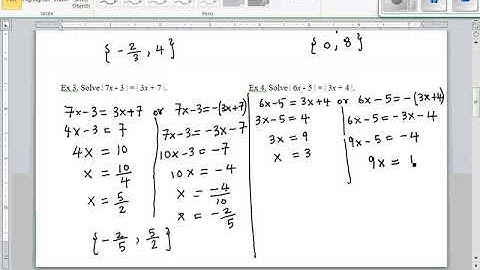 { -2/3 , 4 }
{ 0, 8 }
Ex 3. Solve | 7x - 3 | = | 3x + 7 |.
7x-3 = 3x+7 or 7x-3 = -(3x+7)
4x-3 = 7
7x-3 = -3x-7
4x = 10
10x-3 = -7
x = 10/4
10x = -4
x = 5/2
x = -4/10
x = -2/5
{ -2/5 , 5/2 }
Ex 4. Solve | 6x - 5 | = | 3x + 4 |.
6x-5 = 3x+4 or 6x-5 = -(3x+4)
3x-5 = 4
6x-5 = -3x-4
3x = 9
9x-5 = -4
x = 3
9x = 1